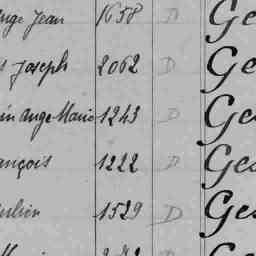 ange Jean 1658 D Ge
Joseph 2062 D Ge
Ange Marie 1243 D Ges
ançois 1222 D Ges
ulien 1529 D Ges